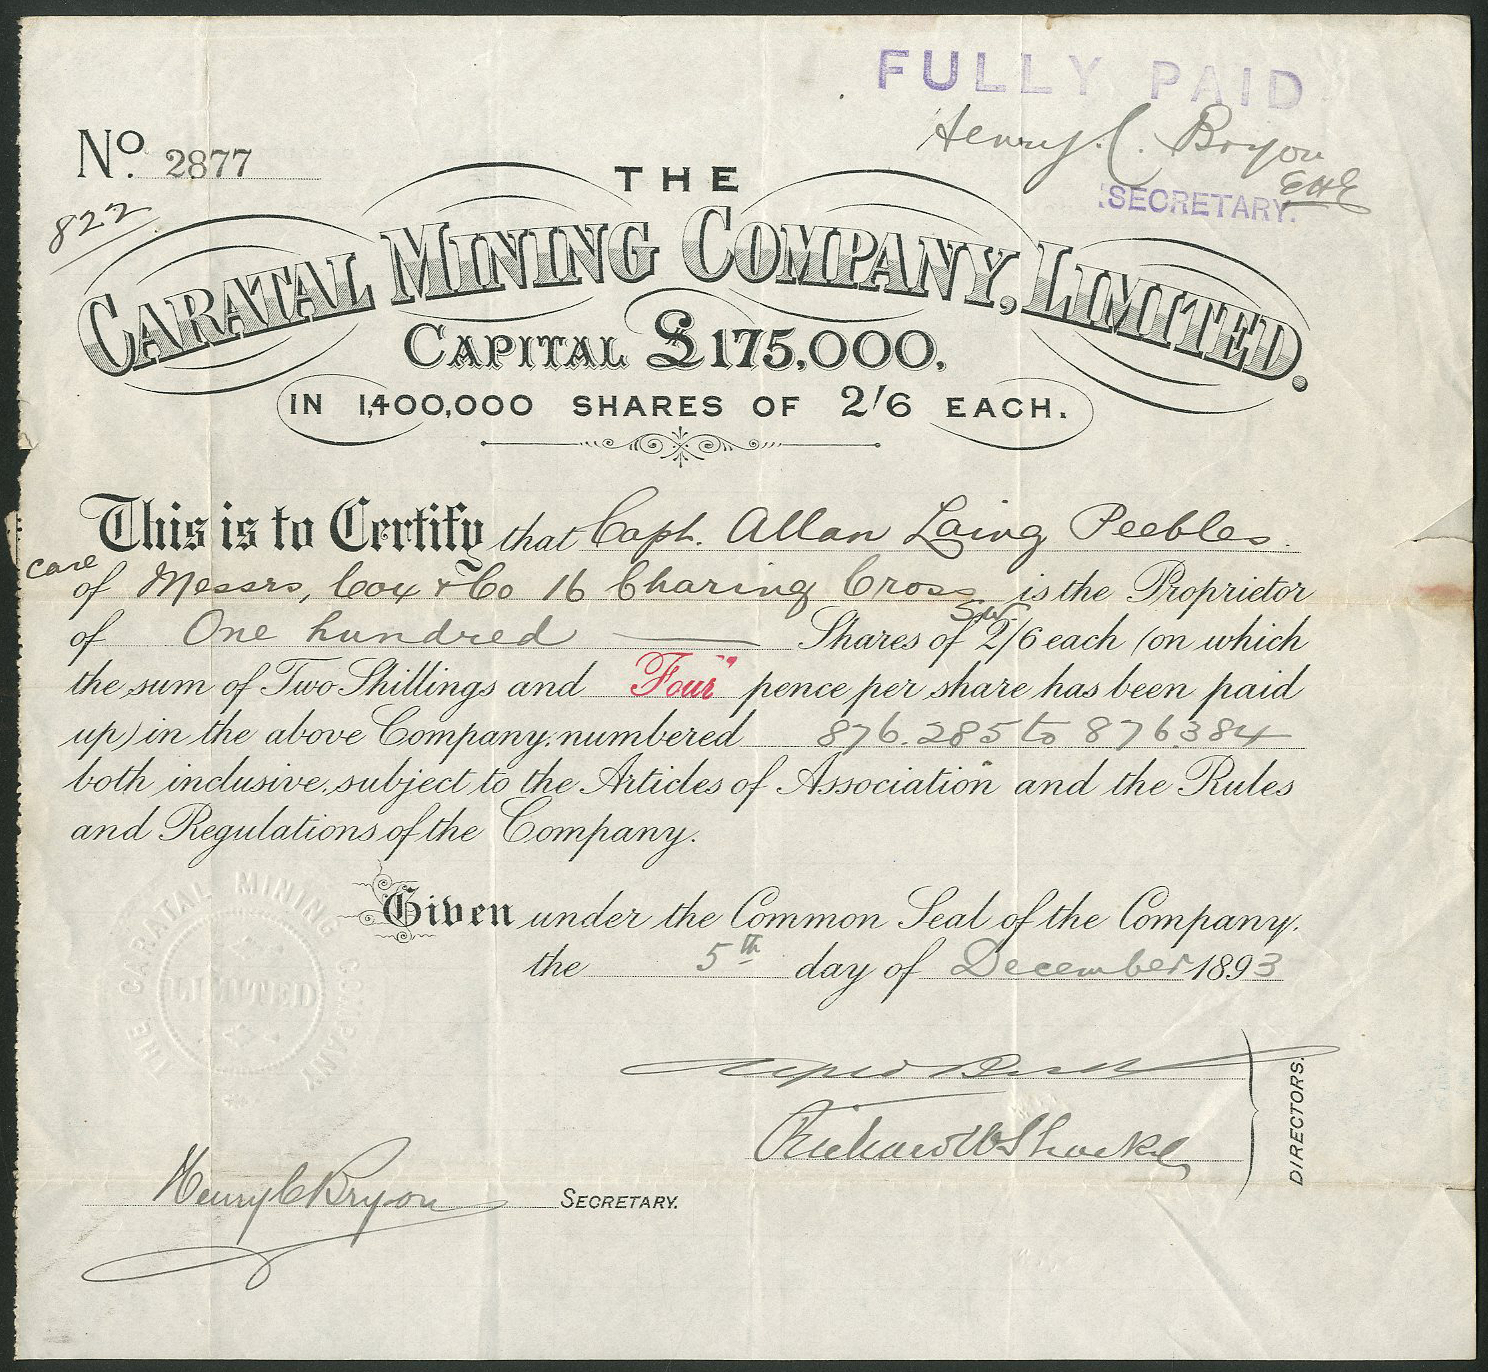 FULLY PAID
Henry. C. Bryon
SECRETARY.
No. 2877
822
THE
CARATAL MINING COMPANY, LIMITED.
CAPITAL £175,000,
IN 1,400,000 SHARES OF 2/6 EACH.
This is to Certify that Capt. Allan Laing Peebles.
care
of Messrs, Cox & Co 16 Charing Cross is the Proprietor
of One hundred Shares of 2/6 each (on which
the sum of Two Shillings and "Four" pence per share has been paid
up) in the above Company, numbered 876.285 to 876.384
both inclusive, subject to the Articles of Association and the Rules
and Regulations of the Company.
Given under the Common Seal of the Company.
the 5th day of December 1893
THE CARATAL MINING COMPANY
LIMITED
DIRECTORS.
Henry C Bryon SECRETARY.